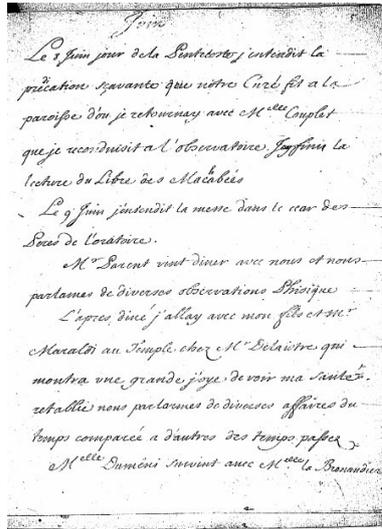 Juin
Le 8 Juin jour de la Pentecoste j'entendit la
prédication sçavante que nôtre Curé fit a la
paroisse d'ou je retournay avec M.elle Couplet
que je reconduisit a l'observatoire. Jey finis la
lecture du Libre des Macabées
Le 9 Juin j'entendit la messe dans le cœur des
Peres de l'oratoire.
Mr Parent vint diner avec nous et nous
parlames de diverses observations Phisique
L'apres diné j'allay avec mon fils et Mr
Maraldi au Temple chez Mr Delaistre qui
montra une grande joye de voir ma santé
retablie nous parlasmes de diverses affaires du
temps comparée a d'autres des temps passez
M.elle Duméni survint avec M.elle la